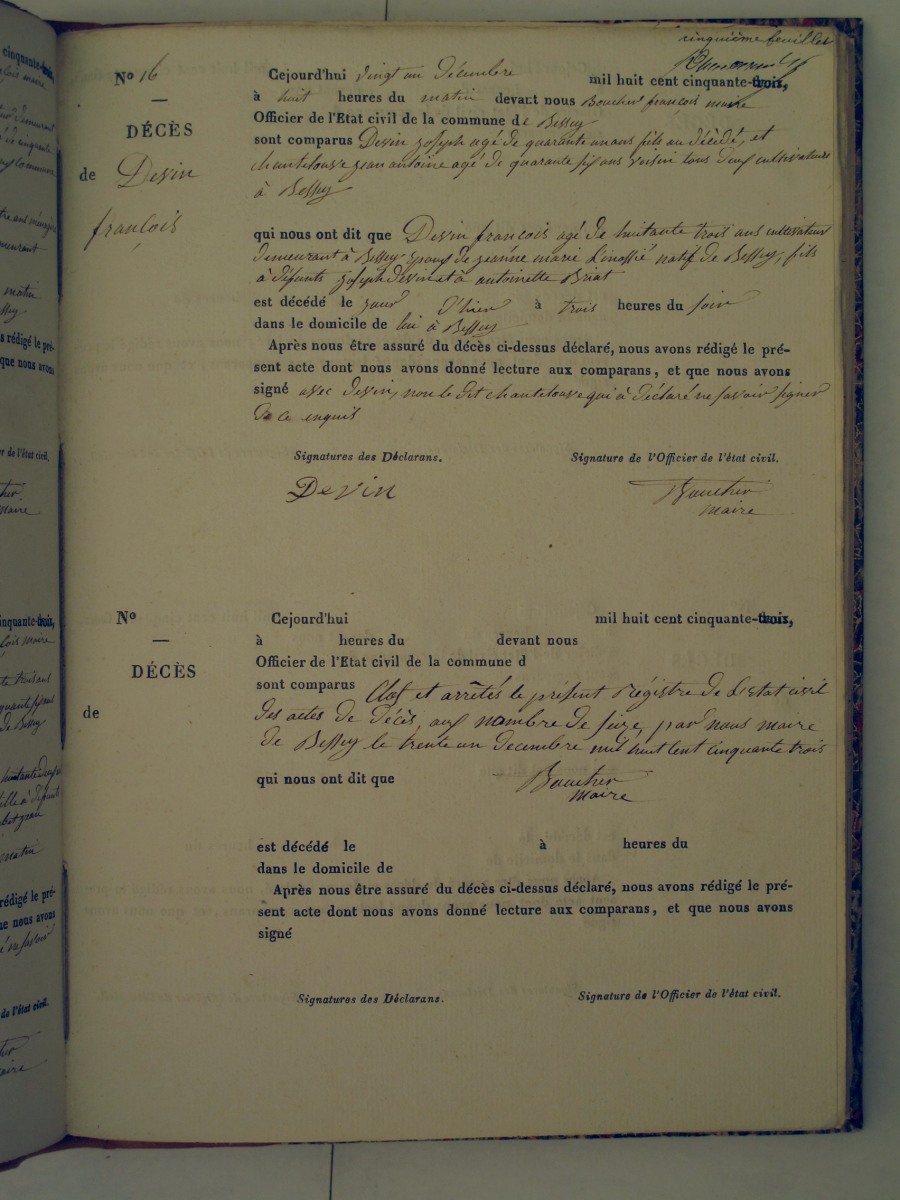 cinquième feuillet
Nº 16
DÉCÈS
de Devin
françois
Cejourd'hui vingt un décembre mil huit cent cinquante-trois,
à huit heures du matin devant nous Boucher françois maire
Officier de l'Etat civil de la commune de Bessey
sont comparus Devin joseph agé de quarante un ans fils au décédé, et
chantelouve jean antoine agé de quarante six ans voisin tous deux cultivateurs
à Bessey
qui nous ont dit que Devin françois agé de huitante trois ans cultivateur
demeurant à Bessey epoux de jeanne marie Linossié natif de Bessey, fils
à défunts joseph devin et à antoinette Briat
est décédé le jour d'hier à trois heures du soir
dans le domicile de lui à Bessey
Après nous être assuré du décès ci-dessus déclaré, nous avons rédigé le pré-
sent acte dont nous avons donné lecture aux comparans, et que nous avons
signé avec devin, non le dit chantelouve qui à déclaré ne savoir signer
de ce enquis
Signatures des Déclarans. Signature de l'Officier de l'état civil.
Devin Boucher
maire
Nº
DÉCÈS
de
Cejourd'hui mil huit cent cinquante-trois,
à heures du devant nous
Officier de l'Etat civil de la commune d
sont comparus Clos et arrêtés le présent Régistre de l'état civil
des actes de décès, aux nombre de seize, par nous maire
de Bessey le trente un decembre mil huit cent cinquante trois
qui nous ont dit que Boucher
maire
est décédé le à heures du
dans le domicile de
Après nous être assuré du décès ci-dessus déclaré, nous avons rédigé le pré-
sent acte dont nous avons donné lecture aux comparans, et que nous avons
signé
Signatures des Déclarans. Signature de l'Officier de l'état civil.